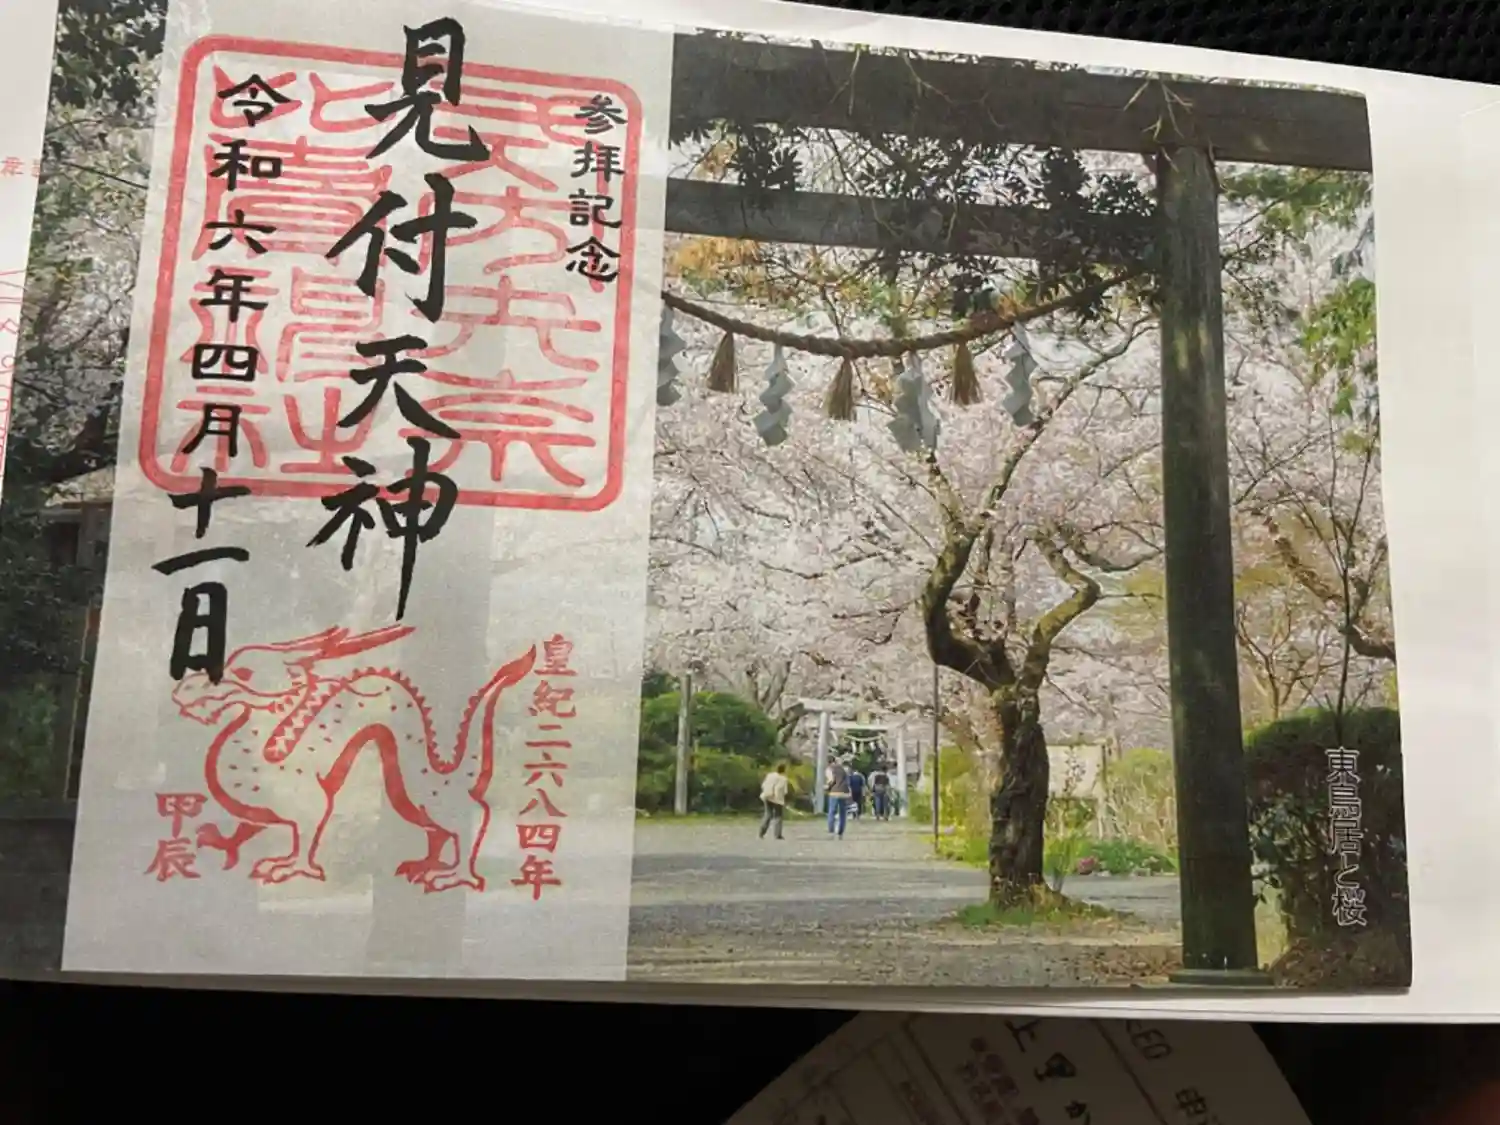 参拝記念
見付天神
令和六年四月十一日
皇紀二六八四年
甲辰
東鳥居と桜